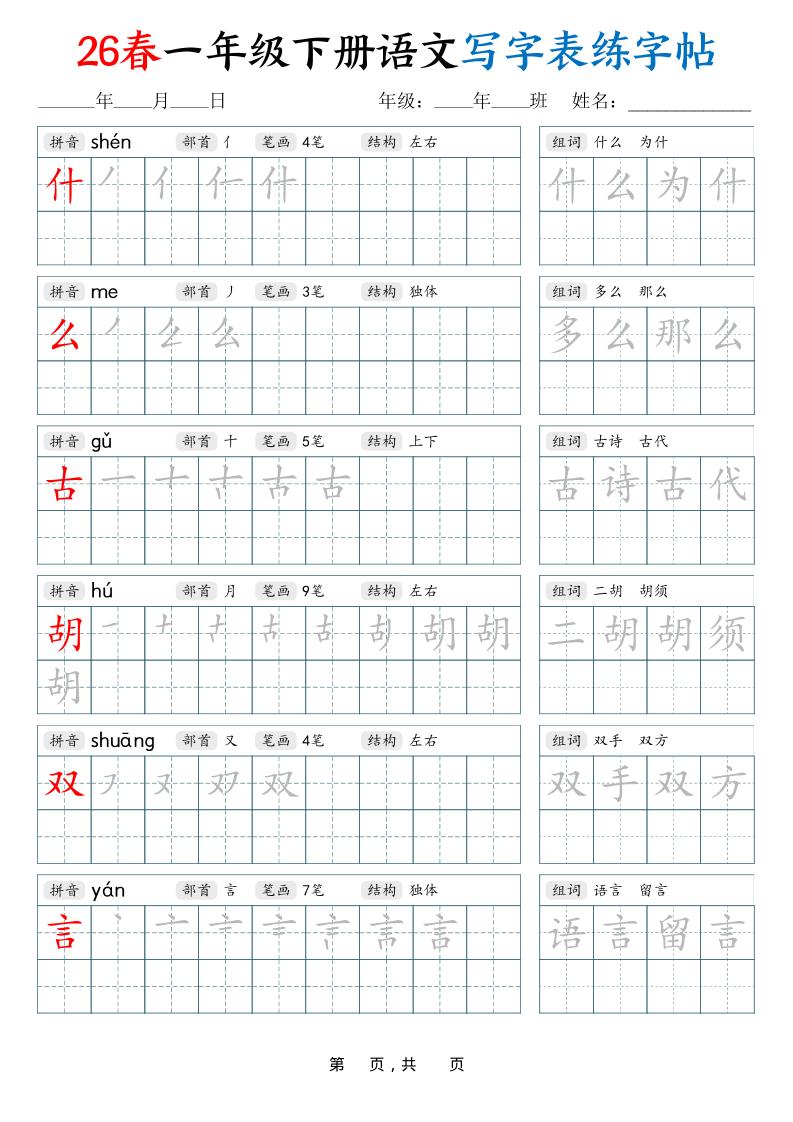 26春一年级下册语文写字表练字帖
______年____月____日 年级：____年____班 姓名：_____________
拼音 shén 部首 亻 笔画 4笔 结构 左右 组词 什么 为什
什 什 么 为 什
拼音 me 部首 丿 笔画 3笔 结构 独体 组词 多么 那么
么 么 多 么 那 么
拼音 gǔ 部首 十 笔画 5笔 结构 上下 组词 古诗 古代
古 一 十 古 古 诗 古 代
拼音 hú 部首 月 笔画 9笔 结构 左右 组词 二胡 胡须
胡 二 胡 胡 须
胡
拼音 shuāng 部首 又 笔画 4笔 结构 左右 组词 双手 双方
双 又 双 双 手 双 方
拼音 yán 部首 言 笔画 7笔 结构 独体 组词 语言 留言
言 言 语 言 留 言
第 页，共 页